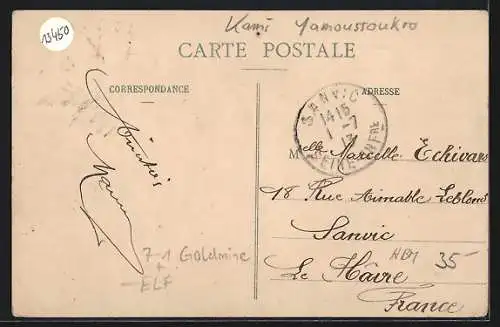 13450
Kami Yamoussoukro
CARTE POSTALE
CORRESPONDANCE
ADRESSE
SANVIC
14 15
1 - 7
SEINE INFRE
Melle Marcelle Echivard
18 Rue Aimable Leblond
Sanvic
Le Hâvre
France
7-1 Goldmine
+
ELF
35-